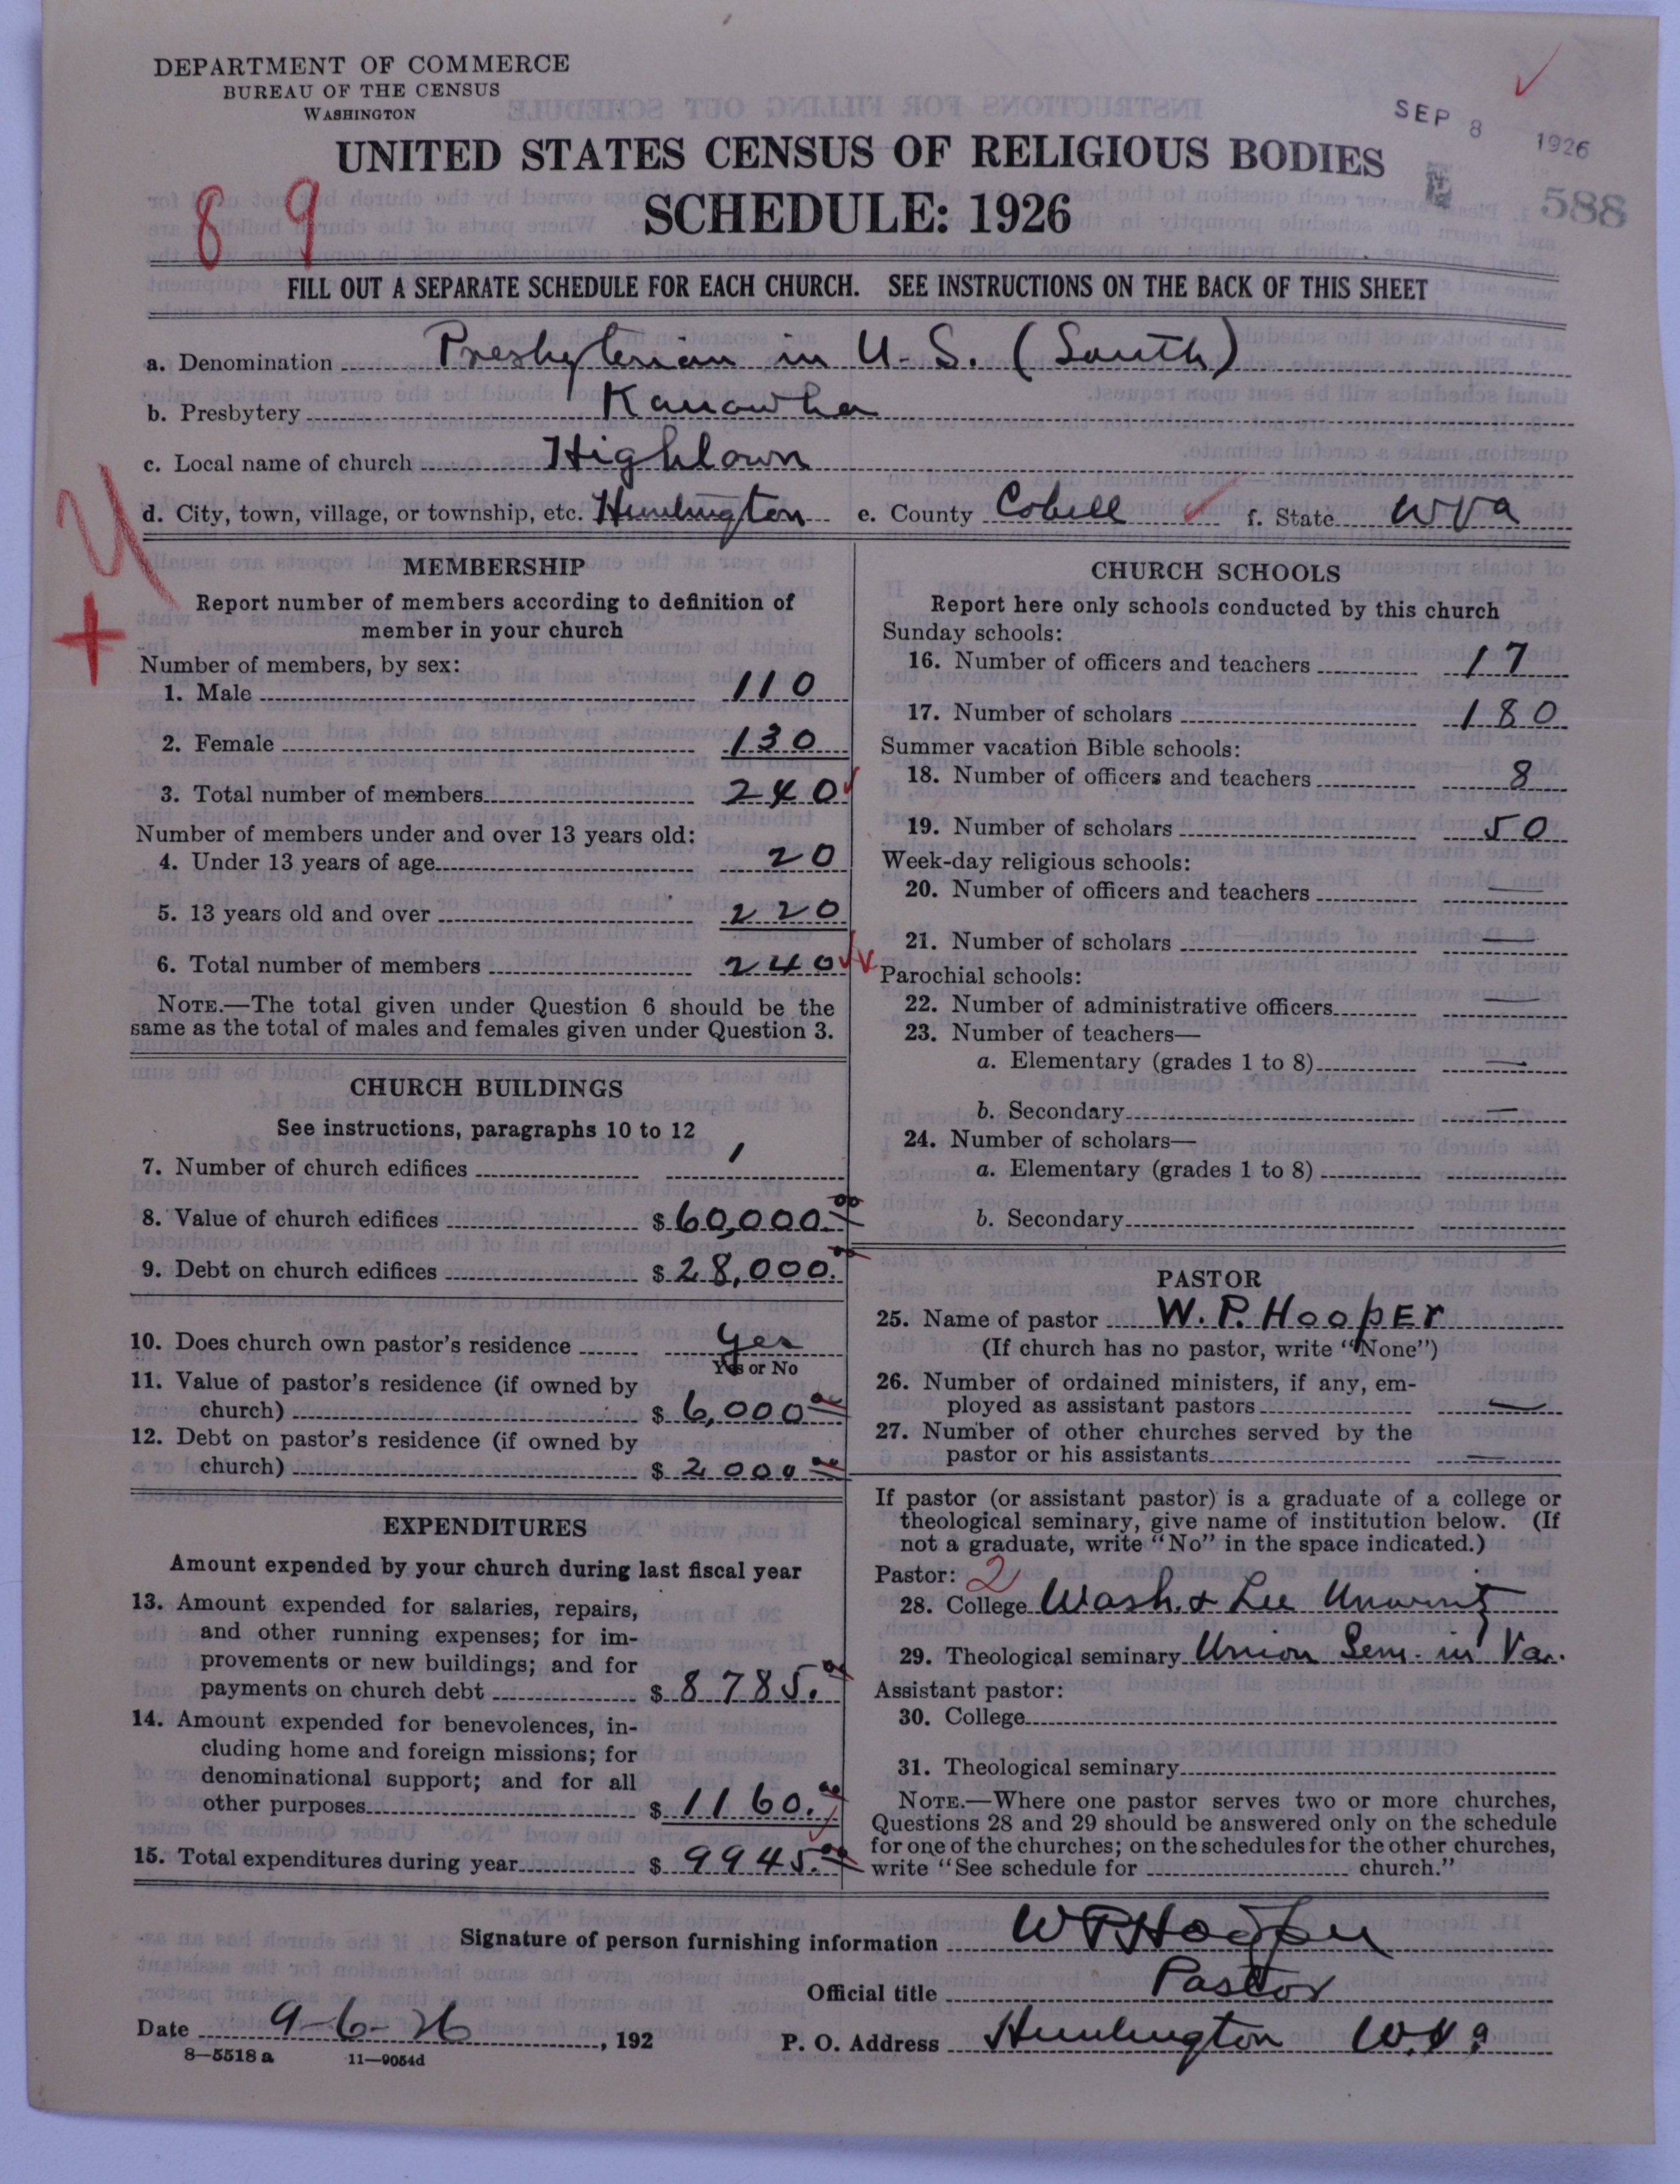 DEPARTMENT OF COMMERCE
BUREAU OF THE CENSUS
WASHINGTON
SEP 8 1926
588
UNITED STATES CENSUS OF RELIGIOUS BODIES
SCHEDULE: 1926
8 9
FILL OUT A SEPARATE SCHEDULE FOR EACH CHURCH. SEE INSTRUCTIONS ON THE BACK OF THIS SHEET
a. Denomination Presbyterian in U.S. (South)
b. Presbytery Kanawha
c. Local name of church Highlawn
d. City, town, village, or township, etc. Huntington e. County Cabell f. State W Va
MEMBERSHIP
Report number of members according to definition of
member in your church
Number of members, by sex:
1. Male 110
2. Female 130
3. Total number of members 240
Number of members under and over 13 years old:
4. Under 13 years of age 20
5. 13 years old and over 220
6. Total number of members 240
NOTE.—The total given under Question 6 should be the
same as the total of males and females given under Question 3.
CHURCH BUILDINGS
See instructions, paragraphs 10 to 12
7. Number of church edifices 1
8. Value of church edifices $ 60,000.00
9. Debt on church edifices $ 28,000.00
10. Does church own pastor's residence Yes
Yes or No
11. Value of pastor's residence (if owned by
church) $ 6,000 00
12. Debt on pastor's residence (if owned by
church) $ 2 000 00
EXPENDITURES
Amount expended by your church during last fiscal year
13. Amount expended for salaries, repairs,
and other running expenses; for im-
provements or new buildings; and for
payments on church debt $ 8785.00
14. Amount expended for benevolences, in-
cluding home and foreign missions; for
denominational support; and for all
other purposes $ 1160.00
15. Total expenditures during year $ 9945.00
CHURCH SCHOOLS
Report here only schools conducted by this church
Sunday schools:
16. Number of officers and teachers 17
17. Number of scholars 180
Summer vacation Bible schools:
18. Number of officers and teachers 8
19. Number of scholars 50
Week-day religious schools:
20. Number of officers and teachers —
21. Number of scholars —
Parochial schools:
22. Number of administrative officers —
23. Number of teachers—
a. Elementary (grades 1 to 8) —
b. Secondary —
24. Number of scholars—
a. Elementary (grades 1 to 8)
b. Secondary
PASTOR
25. Name of pastor W. P. HoopEr
(If church has no pastor, write "None")
26. Number of ordained ministers, if any, em-
ployed as assistant pastors —
27. Number of other churches served by the
pastor or his assistants —
If pastor (or assistant pastor) is a graduate of a college or
theological seminary, give name of institution below. (If
not a graduate, write "No" in the space indicated.)
Pastor: 2
28. College Wash. & Lee University
29. Theological seminary Union Sem. in Va.
Assistant pastor:
30. College
31. Theological seminary
NOTE.—Where one pastor serves two or more churches,
Questions 28 and 29 should be answered only on the schedule
for one of the churches; on the schedules for the other churches,
write "See schedule for church."
Signature of person furnishing information W P Hooper
Official title Pastor
Date 9-6-26, 192 P. O. Address Huntington W. Va
8—5518 a 11—9054d